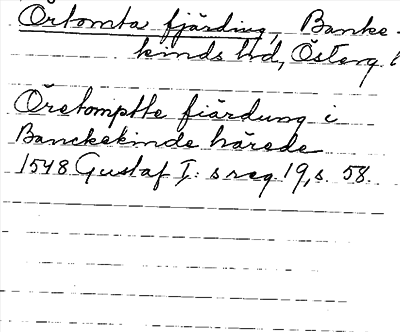 Örtomta fjärding, Banke-
kinds hd, Österg l
Öretomptte fiärdung i
Banckekinde härede
1548 Gustaf I: s reg 19, s. 58.